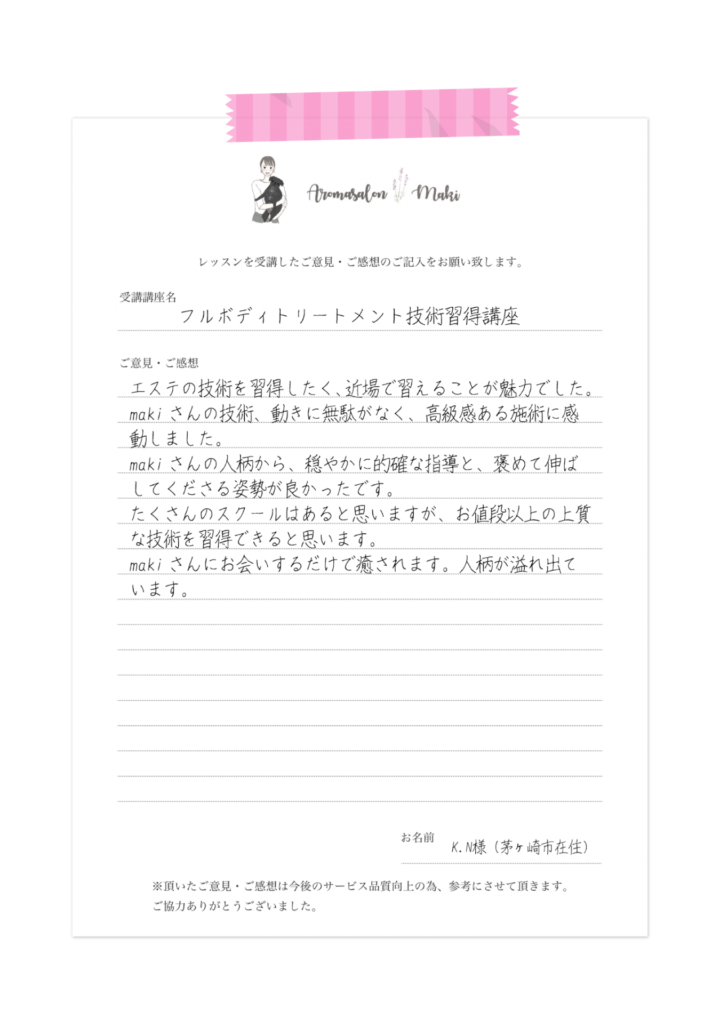 Aromasalon Maki
レッスンを受講したご意見・ご感想のご記入をお願い致します。
受講講座名
フルボディトリートメント技術習得講座
ご意見・ご感想
エステの技術を習得したく、近場で習えることが魅力でした。
makiさんの技術、動きに無駄がなく、高級感ある施術に感
動しました。
makiさんの人柄から、穏やかに的確な指導と、褒めて伸ば
してくださる姿勢が良かったです。
たくさんのスクールはあると思いますが、お値段以上の上質
な技術を習得できると思います。
makiさんにお会いするだけで癒されます。人柄が溢れ出て
います。
お名前
K.N様（茅ヶ崎市在住）
※頂いたご意見・ご感想は今後のサービス品質向上の為、参考にさせて頂きます。
ご協力ありがとうございました。